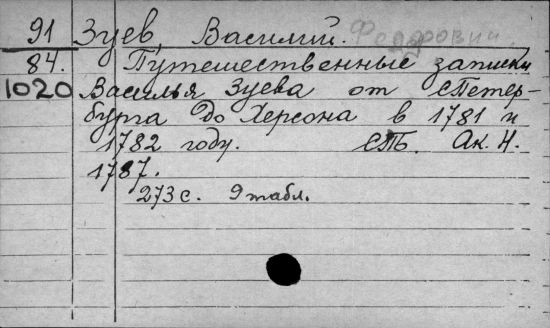 91 Зуев, Василий. Федорович
84. Путешественные записки
1020 Василья Зуева от СПетер-
бурга до Херсона в 1781 и
1782 году. СПБ. Ак. Н.
1787.
273 с. 9 табл.